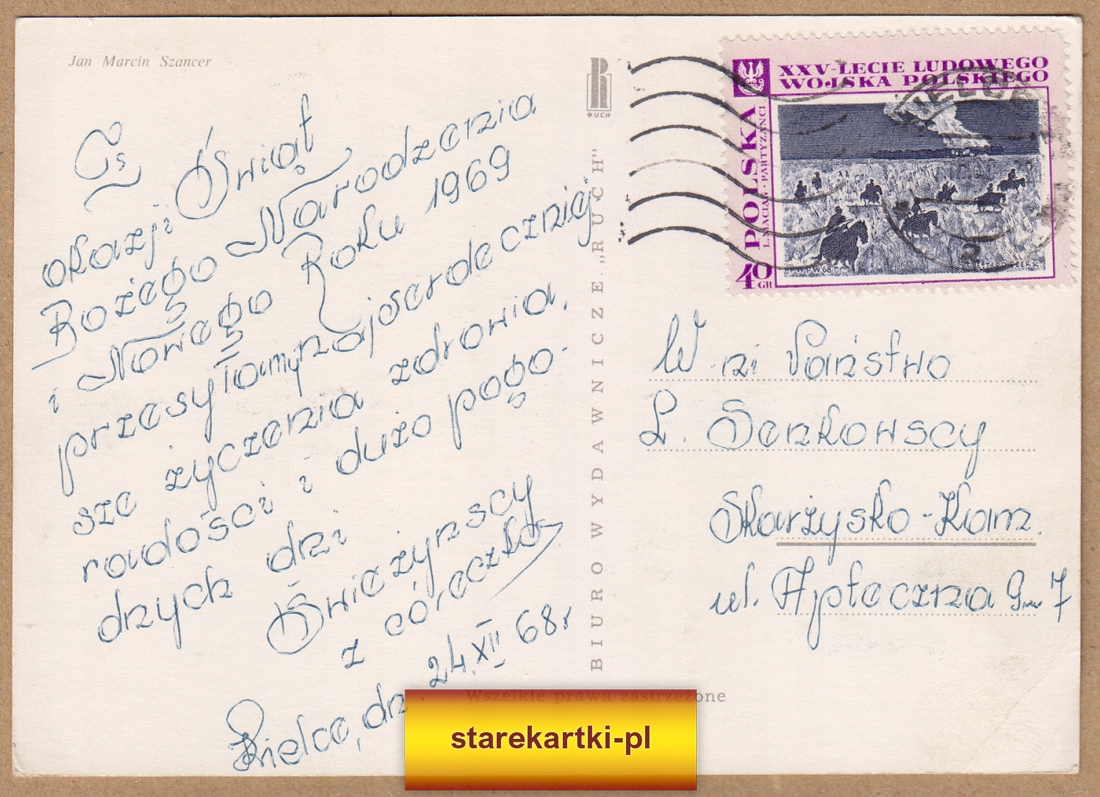 Jan Marcin Szancer
RUCH
Z
okazji Świąt
Bożego Narodzenia
i Nowego Roku 1969
przesyłamy najserdeczniej
sze życzenia zdrowia,
radości i dużo pogo-
dnych dni
Świeżyńscy
z córeczką
Kielce, dn 24.XII 68r
BIURO WYDAWNICZE „RUCH"
Wszelkie prawa zastrzeżone
XXV-LECIE LUDOWEGO
WOJSKA POLSKIEGO
POLSKA
L.MACIĄG-PARTYZANCI
40 GR
KIELCE
2
W ni Państwo
L. Senkowscy
Skarżysko-Kam.
ul. Apteczna 7
starekartki-pl